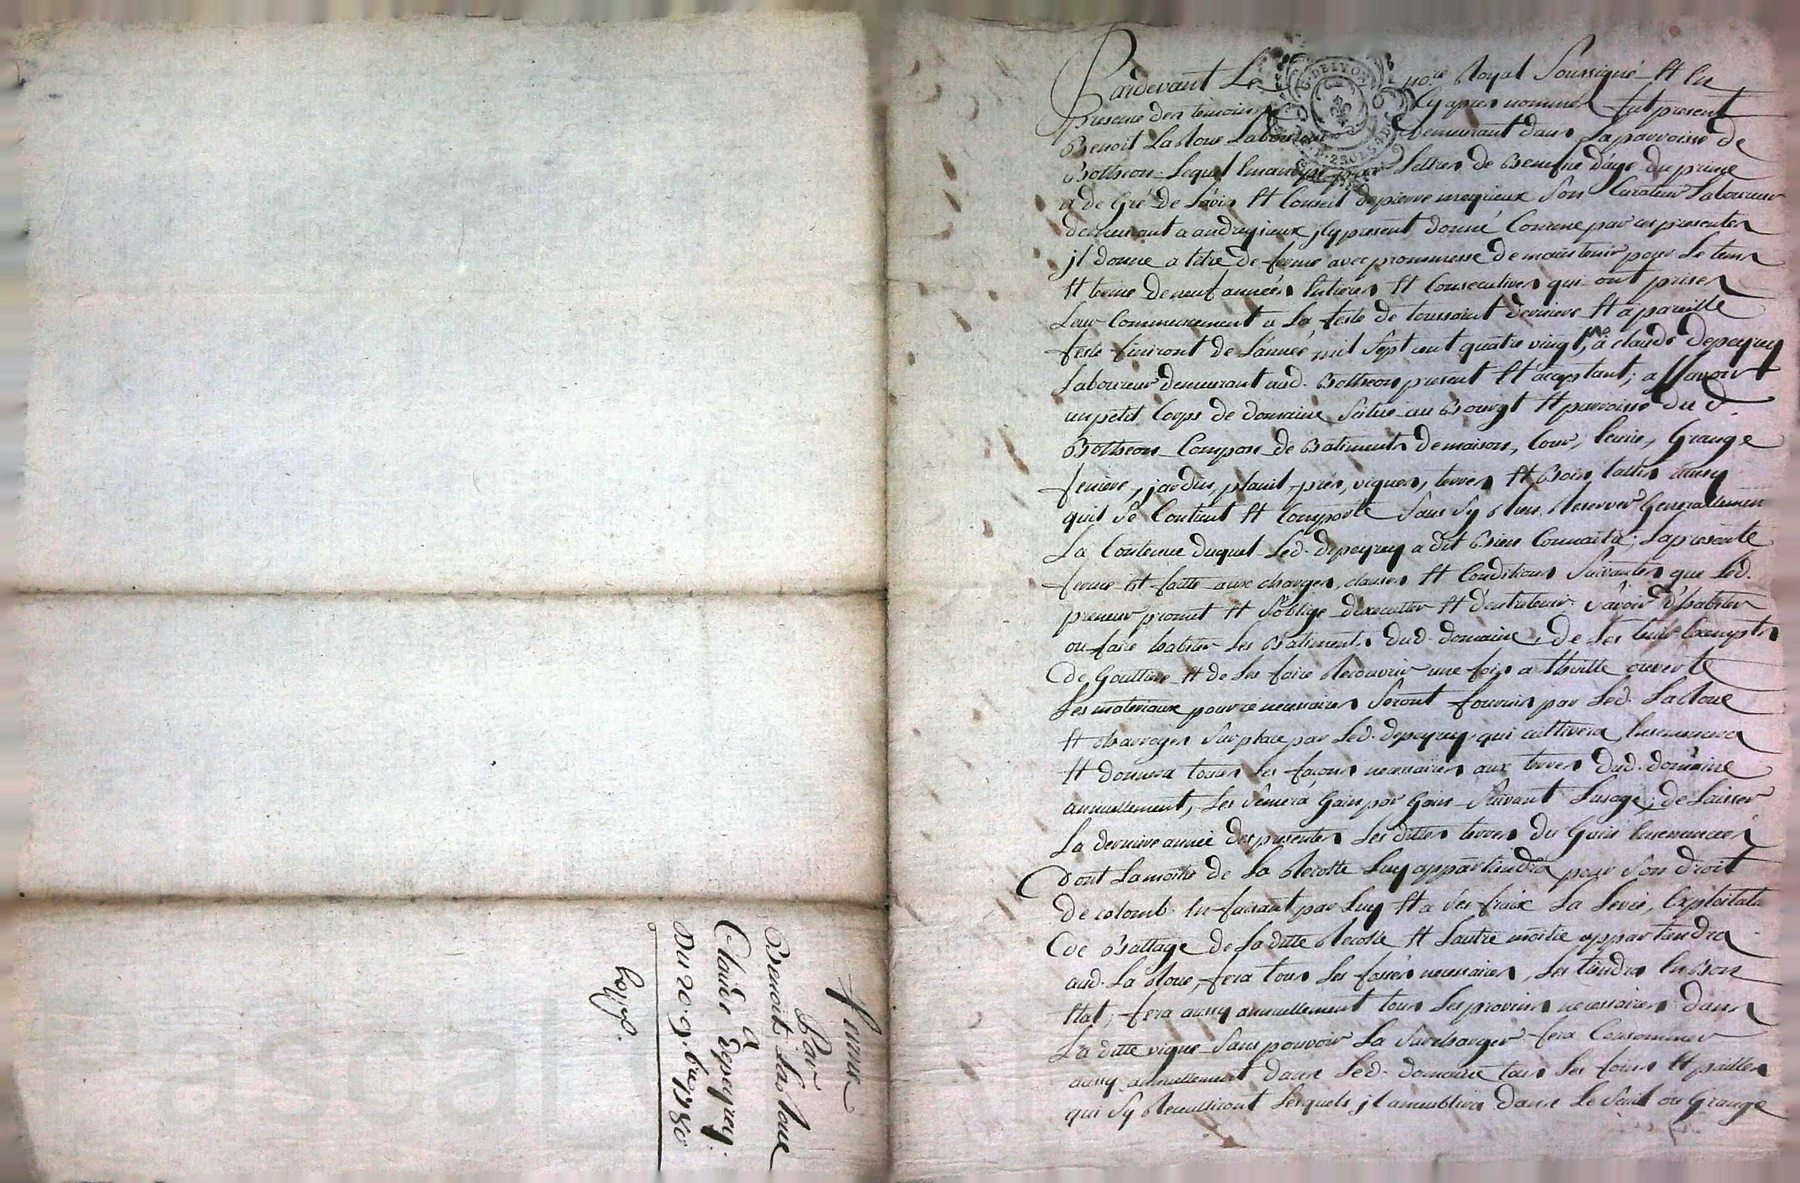 ferme
Par
Benoit Laroue
a
Claude Depeyrey.
Du 20 9.bre 1780
Coppie.
Pardevant Le nore Royal Soussigné Et En
presence des temoins Cy apres nommés fut present
Benoit LaRoue Laboureur Demeurant dans La parroisse de
Botheon Lequel Emancipé par Lettres de Benefice d'age du prince
a de Gré de L'avis Et Conseil de pierre meyrieux Son Curateur Laboureur
demeurant a andrezieux jcy present, donné Comme par ces presentes
jl donne a titre de ferme avec prommesse de maintenir pour Le tems
Et terme de neuf années Entieres Et Consecutives qui ont prises
Leur Commencement a La feste de toussaint derniere Et a pareille
feste finiront de L'année mil Sept cent quatre vingt à claude depeyrey
Laboureur demeurant aud. Botheon present Et acceptant; a Scavoir
un petit Corps de domaine Scitué au Bourgt Et parroisse du d.
Botheon Composé de Batiments de maison, Cour, Ecurie, Grange
feniere, jardin, plant, prés, vignes, terres Et Bois taillis ainsy
quil Se Contient Et Comporte Sans Sy Rien Reserver Generallement
La Contenue duquel Led. depeyrey a dit Bien Connaitre; La presente
ferme Est faitte aux charges, clauses Et Conditions Suivantes que Led.
preneur promet Et S'oblige d'executer Et d'entretenir Savoir d'habiter
ou faire habiter Les Batiments dud. domaine, de Les tenir Exempts
de Gouttiere Et de Les faire Recouvrir une fois a thuille ouverte
Les materiaux pour ce necessaires Seront fournis par Led. LaRoue
Et charroyés Sur place par Led. depeyrey qui cultivera Ensemencera
Et donnera toutes Les façons necessaires aux terres dud. domaine
annuellement, Les Semera Gain par Gain Suivant L'usage; de Laisser
La derniere année des presentes Les dittes terres du Gain Ensemencées
dont La moitié de La Recolte Luy appartiendra pour Son droit
de colomb En faisant par Luy Et a Ses fraix La Levée, Exploitation
de Battage de La ditte Recolte Et L'autre moitié appartiendra
aud. LaRoue, fera tous Les fossés necessaires, Les tiendra En Bon
Etat; fera aussy annuellement tous Les provins necessaires dans
La ditte vigne Sans pouvoir La Surcharger fera Consommer
aussy annuellement dans Led. domaine tous Les foins Et pailles
qui Sy Receuilliront Lesquels jl ameublira dans Le Senil ou Grange